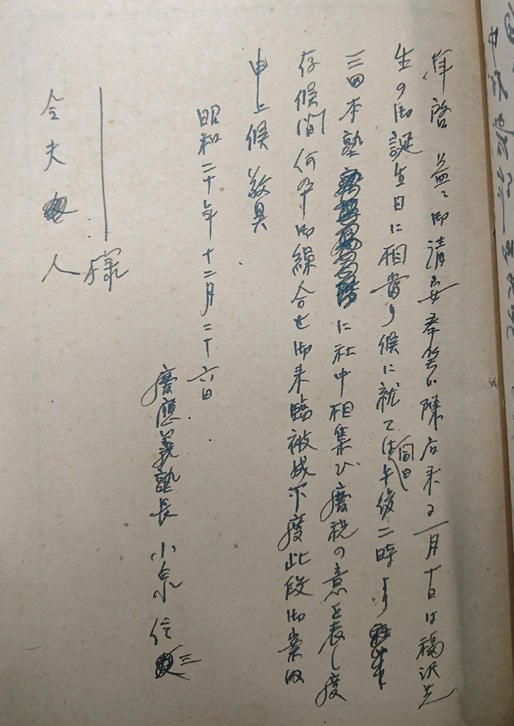 拝啓 益々御清安奉賀候陳者来る一月十日は福沢先
生の御誕生日に相当り候に就ては同日午後二時より
三田本塾に社中相集ひ慶祝の意を表し度
存候間何卒御繰合せ御来臨被成下度此段御案内
申上候 敬具
昭和二十年十二月二十六日
慶應義塾長 小泉信三
様
令夫人